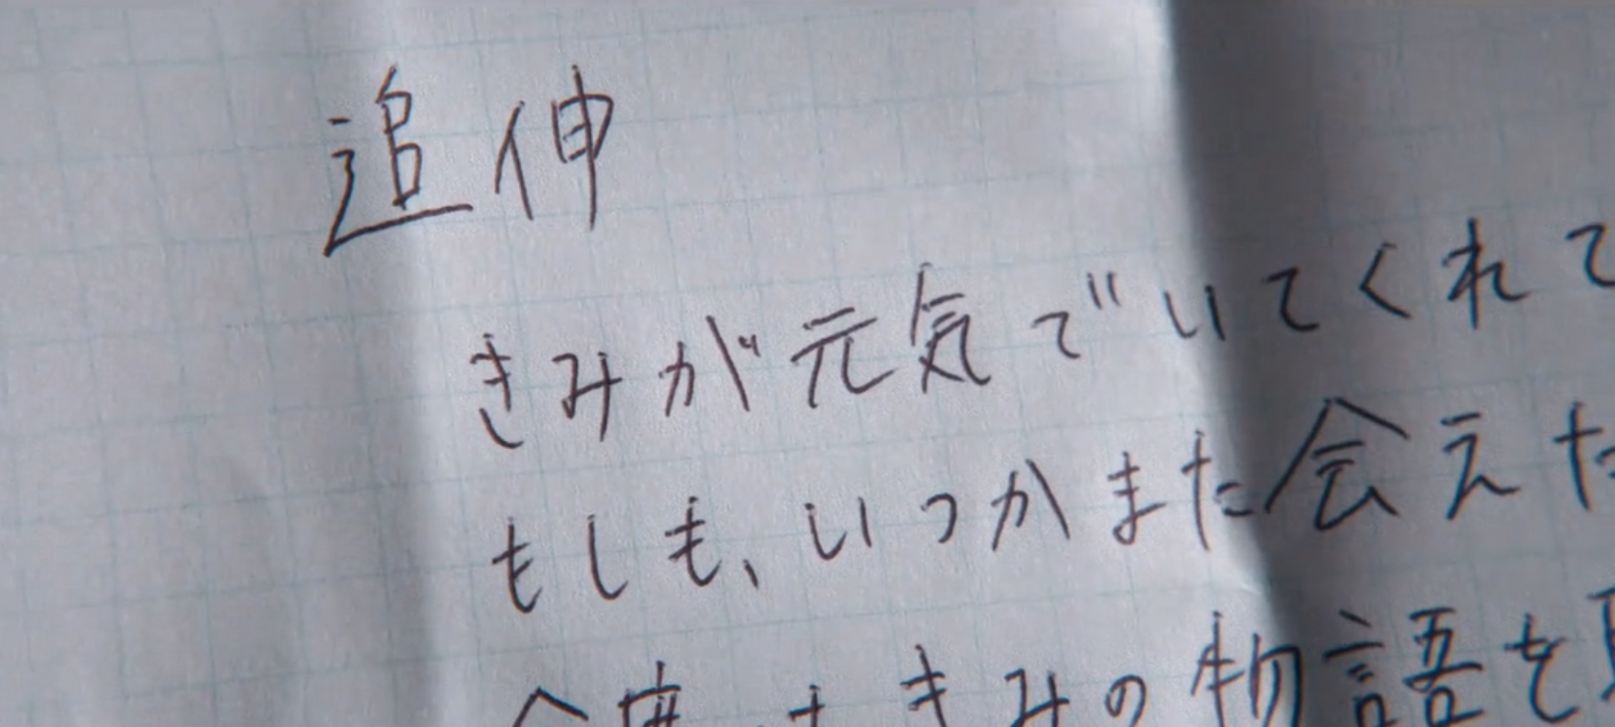 追伸
きみが元気でいてくれて
もしも、いつかまた会えた
今度はきみの物語を